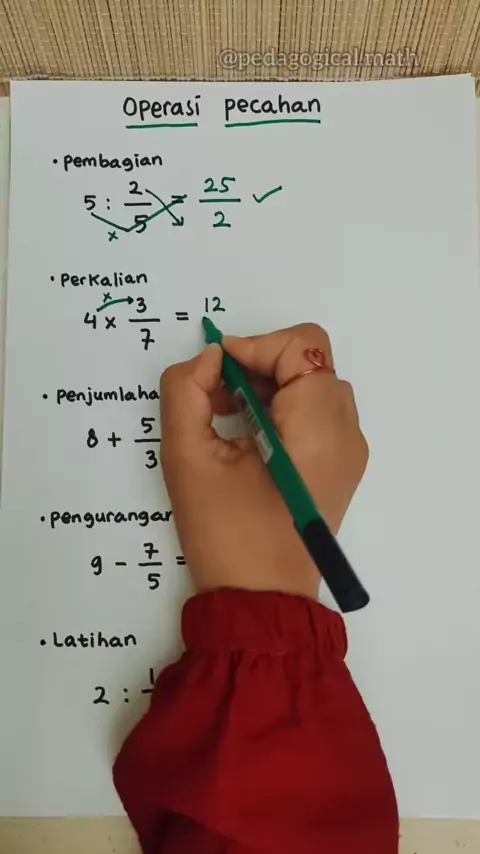 @pedagogical.math
Operasi pecahan
• Pembagian
5 : 2/5 = 25/2 ✓
x
• Perkalian
x
4 x 3/7 = 12
• Penjumlaha
8 + 5/3
• Pengurangan
9 - 7/5 =
• Latihan
2 : 1